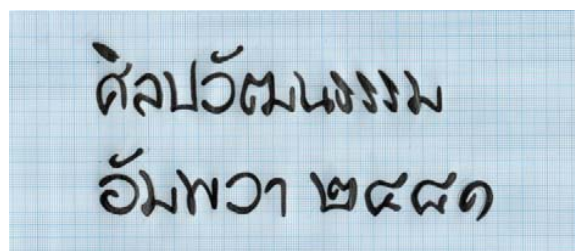 ศิลปวัฒนธรรม
อัมพวา ๒๔๘๑